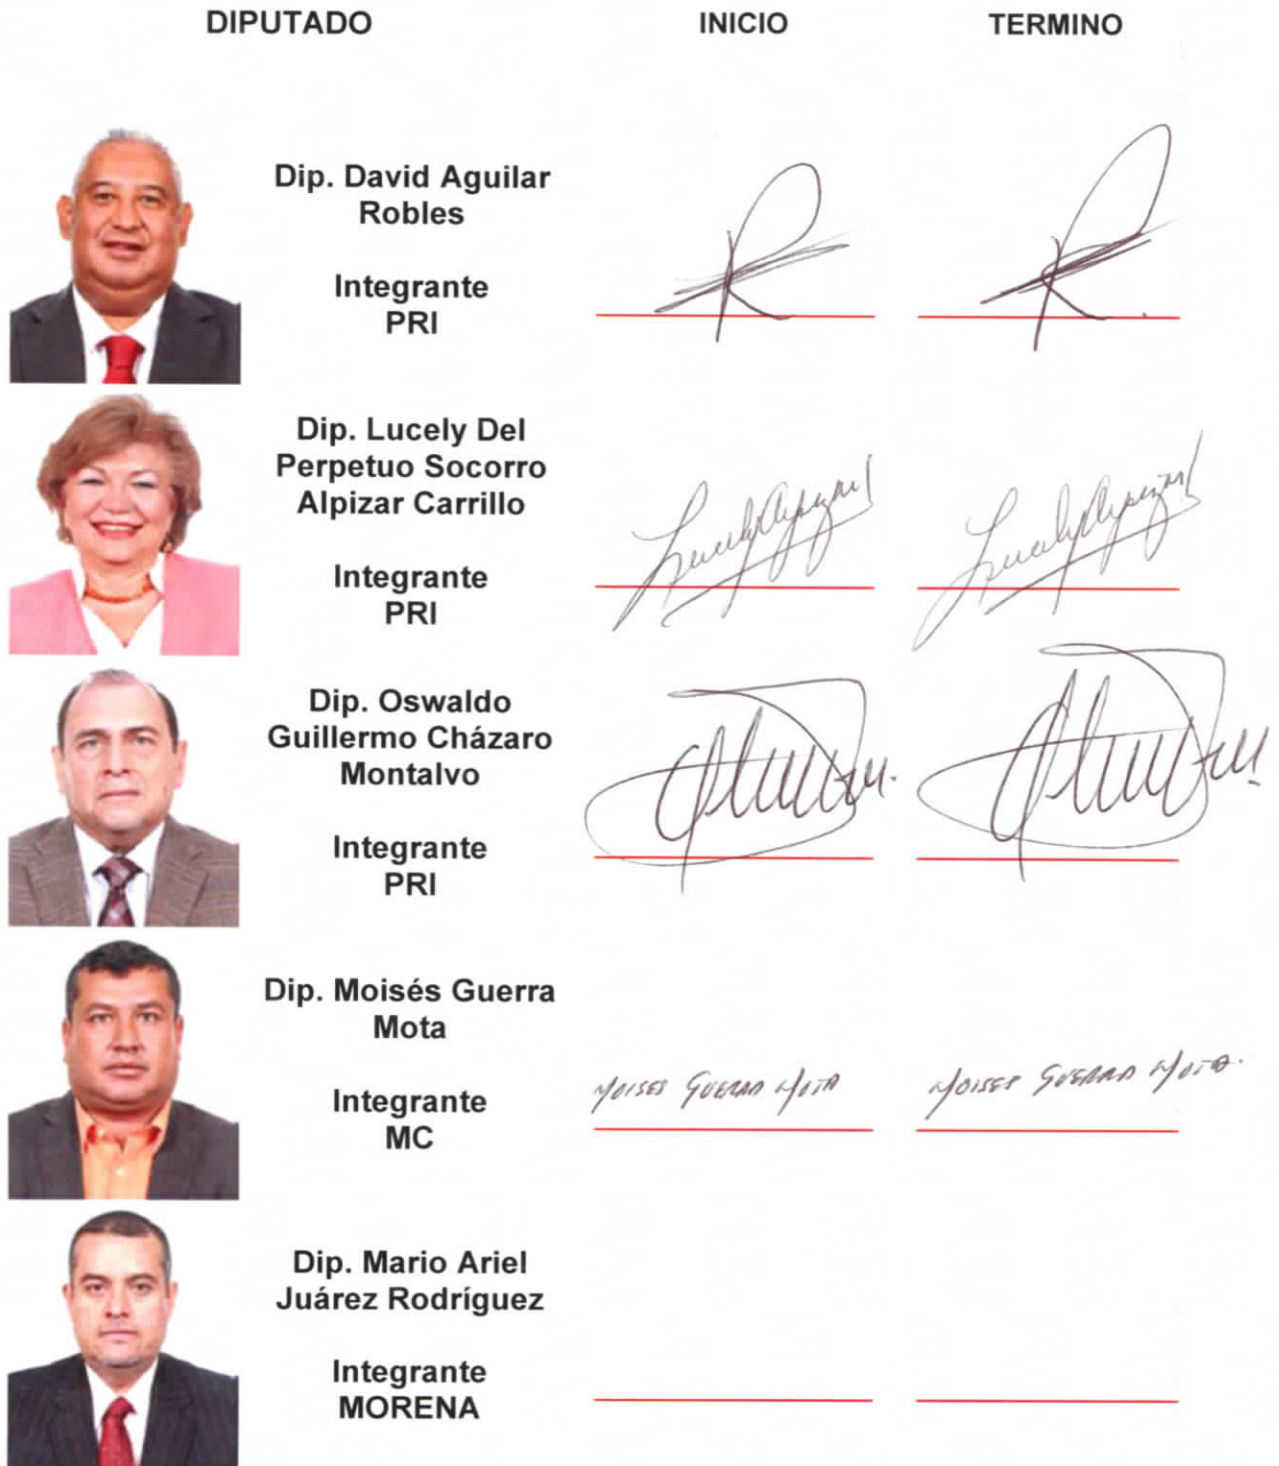 DIPUTADO INICIO TERMINO
Dip. David Aguilar
Robles
Integrante
PRI
Dip. Lucely Del
Perpetuo Socorro
Alpizar Carrillo
Lucely Alpizar Lucely Alpizar
Integrante
PRI
Dip. Oswaldo
Guillermo Cházaro
Montalvo
Integrante
PRI
Dip. Moisés Guerra
Mota
MOISES GUERRA MOTA MOISES GUERRA MOTA.
Integrante
MC
Dip. Mario Ariel
Juárez Rodríguez
Integrante
MORENA